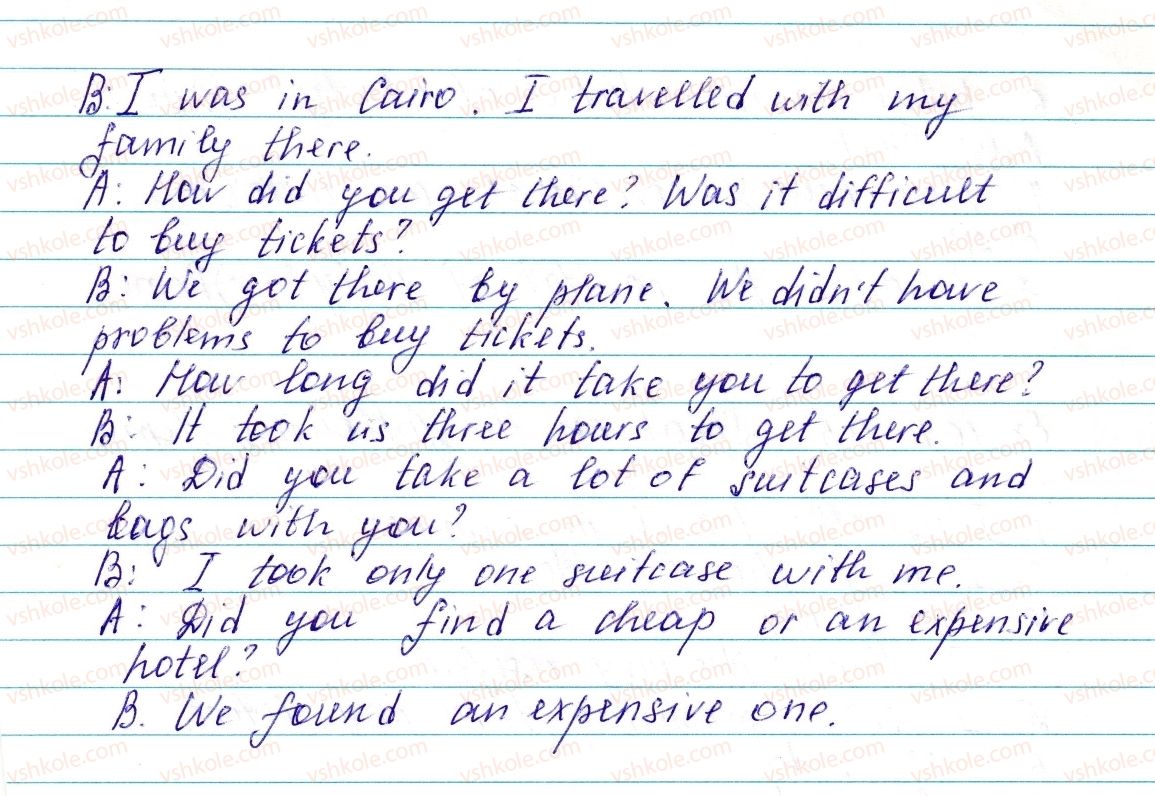 B: I was in Cairo. I travelled with my
family there.
A: How did you get there? Was it difficult
to buy tickets?
B: We got there by plane. We didn't have
problems to buy tickets.
A: How long did it take you to get there?
B: It took us three hours to get there.
A: Did you take a lot of suitcases and
bags with you?
B: I took only one suitcase with me.
A: Did you find a cheap or an expensive
hotel?
B. We found an expensive one.
vshkole.com